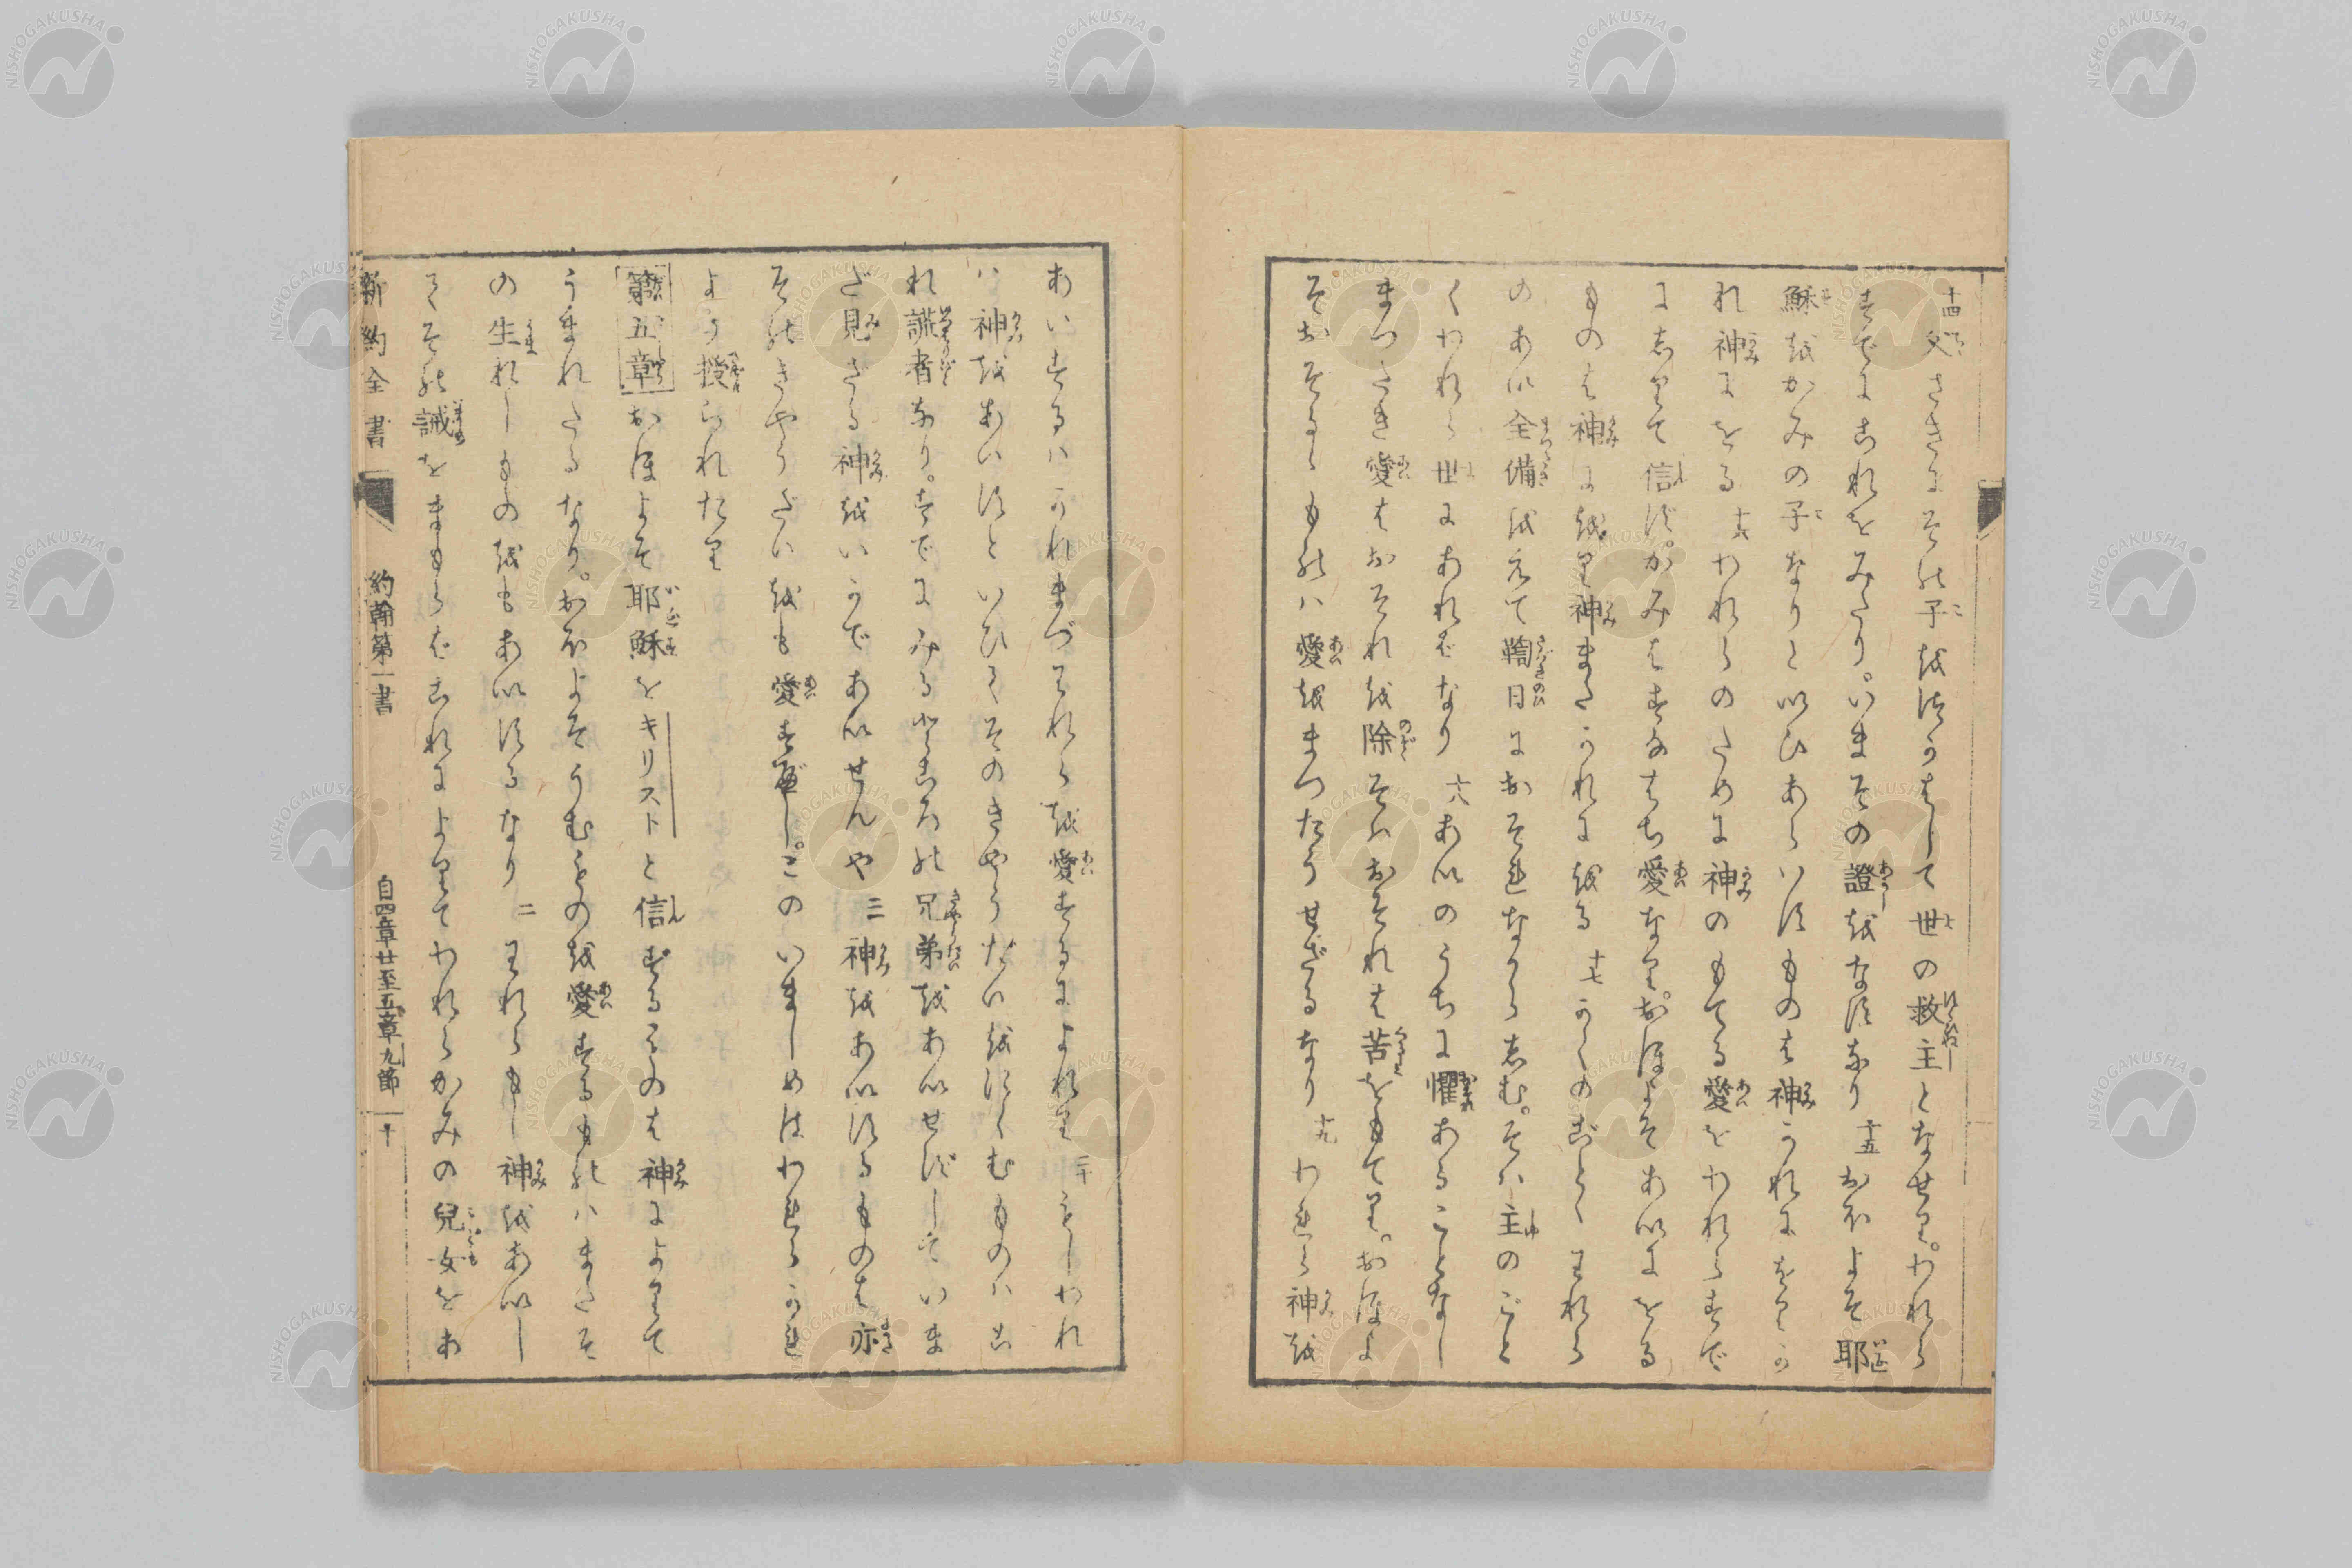 十四父さきにその子をつかはして世の救主となせり。われら
すでにこれをみたり。いまその證をなすなり 十五おほよそ耶
穌をかみの子なりといひあらはすものは神かれにをりか
れ神にをる 十六われらのために神のもてる愛をわれらすで
にしりて信ず。かみはすなはち愛なり。おほよそあいにをる
ものは神にをり神またかれにをる 十七かくのごとくわれら
のあい全備をえて鞫日におそれなからしむ。そは主のごと
くわれら世にあればなり 十八あいのうちに懼あることなし
まつたき愛はおそれを除そはおそれは苦をもてり。おほよ
そおそるゝものハ愛をまつたうせざるなり 十九われら神を
あいするハかれまづわれらを愛するによれり 二十もしわれ
ハ神をあいすといひてそのきやうだいをにくむものハこ
れ謊者なり。すでにみるところの兄弟をあいせずしていま
だ見ざる神をいかであいせんや 三神をあいするものは亦
そのきやうだいをも愛すべし。このいましめはわれらかれ
よう授られたり
第五章 おほよそ耶穌をキリストと信ずるものは神によりて
うまれたるなり。おほよそうむものを愛するものハまたそ
の生れしものをもあいするなり 二 われらもし神をあいし
てその誡をまもらばこれによりてわれらかみの兒女をあ
新約全書 約翰第一書 自四章廿至五章九節 十